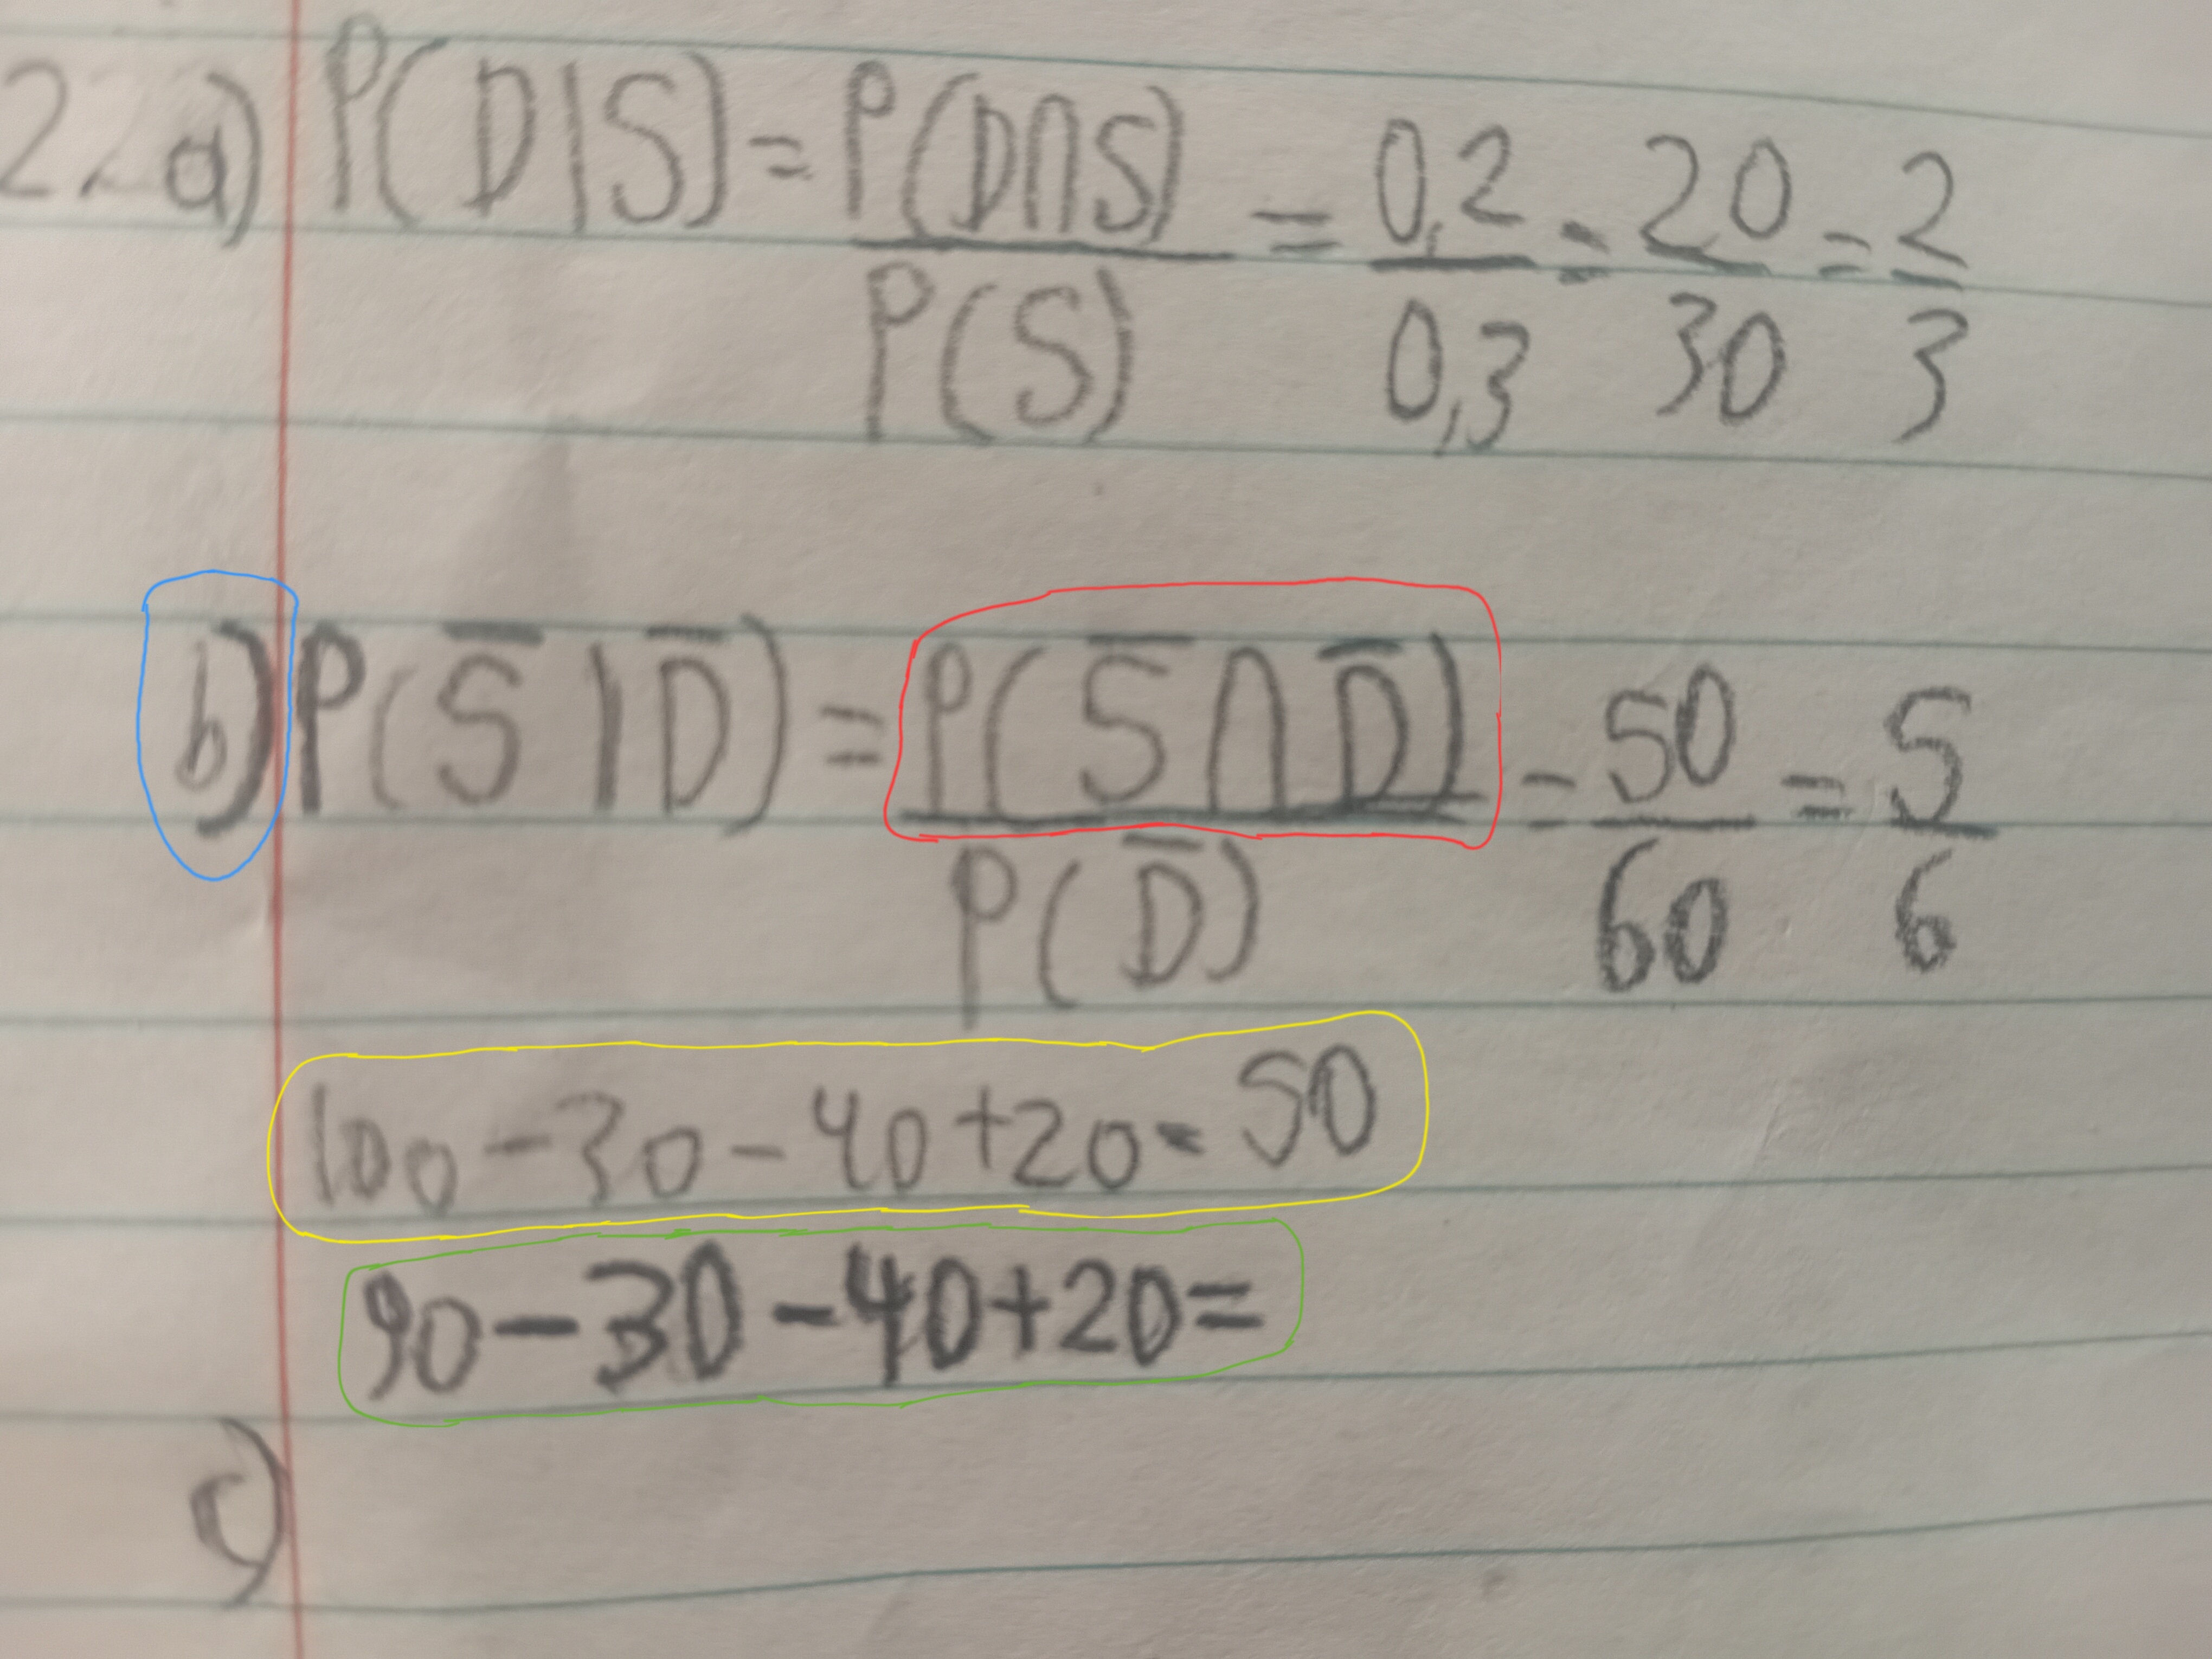 22 a) P(D|S) = P(D∩S)/P(S) = 0,2/0,3 = 20/30 = 2/3
b) P(S̅|D̅) = P(S̅∩D̅)/P(D̅) = 50/60 = 5/6
100-30-40+20=50
90-30-40+20=
c)